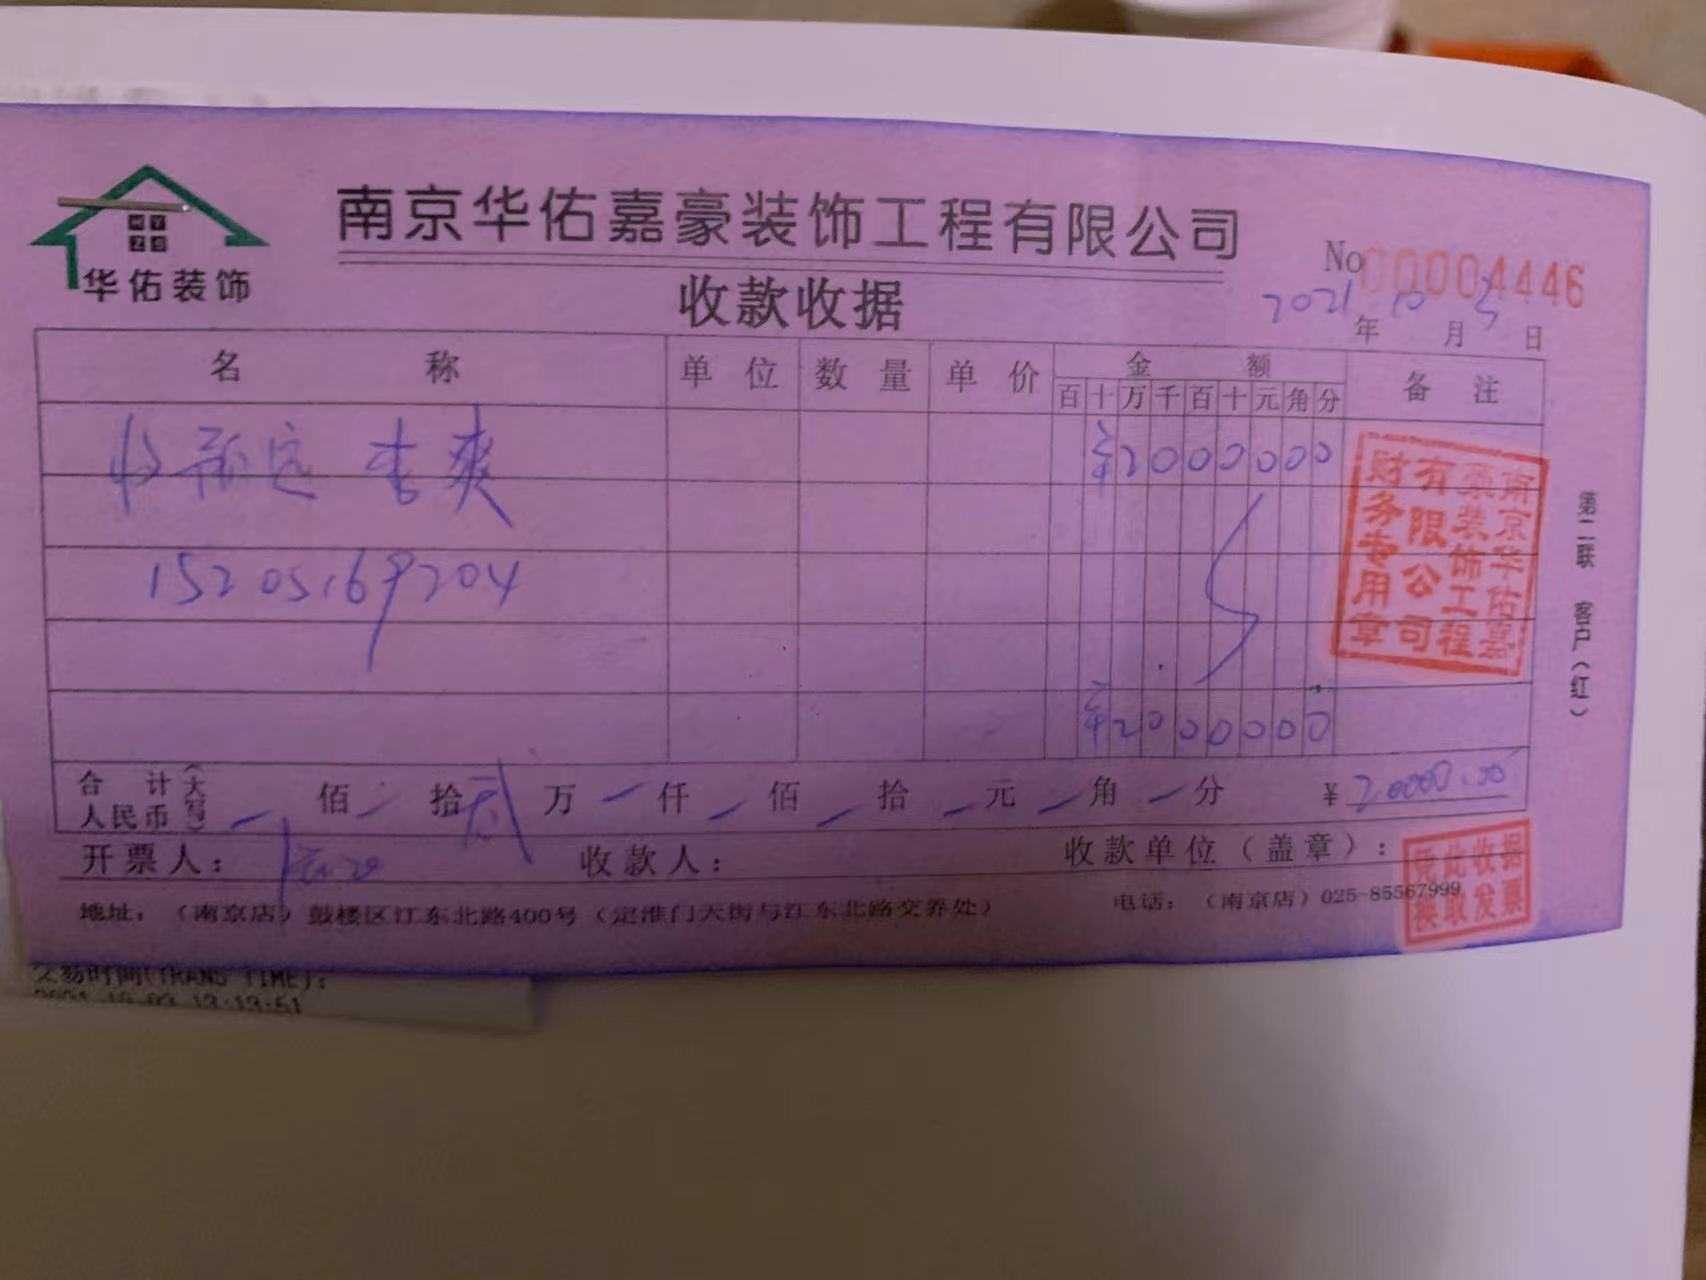 华佑装饰
南京华佑嘉豪装饰工程有限公司
收款收据
No 00004446
2021年10月3日
名 称 单 位 数 量 单 价 金 额 备 注
百十万千百十元角分
收 李爽 ¥2000000
15205169204
¥2000000
南京华佑嘉豪装饰工程有限公司财务专用章
第二联 客户(红)
合计(大写)人民币 佰 拾 贰 万 仟 佰 拾 元 角 分 ¥20000.00
开票人: 收款人: 收款单位(盖章):
凭此收据
换取发票
地址:(南京店)鼓楼区江东北路400号(定淮门大街与江东北路交界处) 电话:(南京店)025-85567999
交易时间(TRANS TIME):